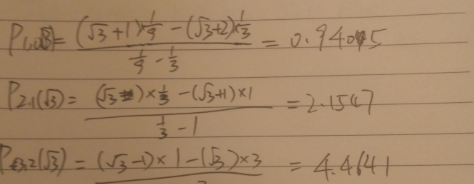 P1,0(√3) = ((√3+1)×1/9 − (√3+2)×1/3) / (1/9 − 1/3) = 0.94015
P2,1(√3) = ((√3)×1/3 − (√3+1)×1) / (1/3 − 1) = 2.1547
P3,2(√3) = (√3−1)×1 − (√3)×3 = 4.4641